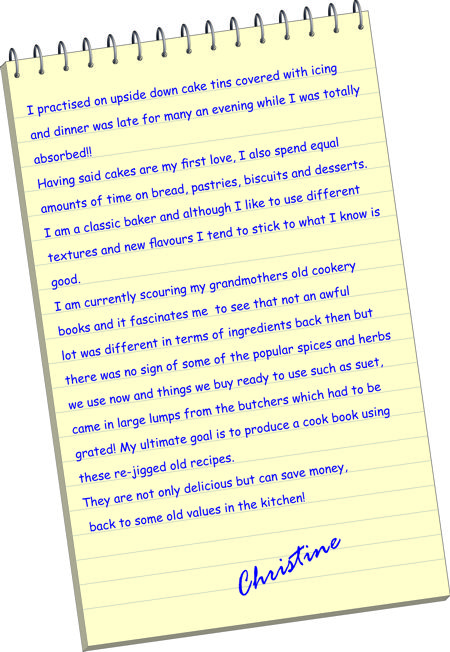 I practised on upside down cake tins covered with icing
and dinner was late for many an evening while I was totally
absorbed!!
Having said cakes are my first love, I also spend equal
amounts of time on bread, pastries, biscuits and desserts.
I am a classic baker and although I like to use different
textures and new flavours I tend to stick to what I know is
good.
I am currently scouring my grandmothers old cookery
books and it fascinates me  to see that not an awful
lot was different in terms of ingredients back then but
there was no sign of some of the popular spices and herbs
we use now and things we buy ready to use such as suet,
came in large lumps from the butchers which had to be
grated! My ultimate goal is to produce a cook book using
these re-jigged old recipes.
They are not only delicious but can save money,
back to some old values in the kitchen!
Christine